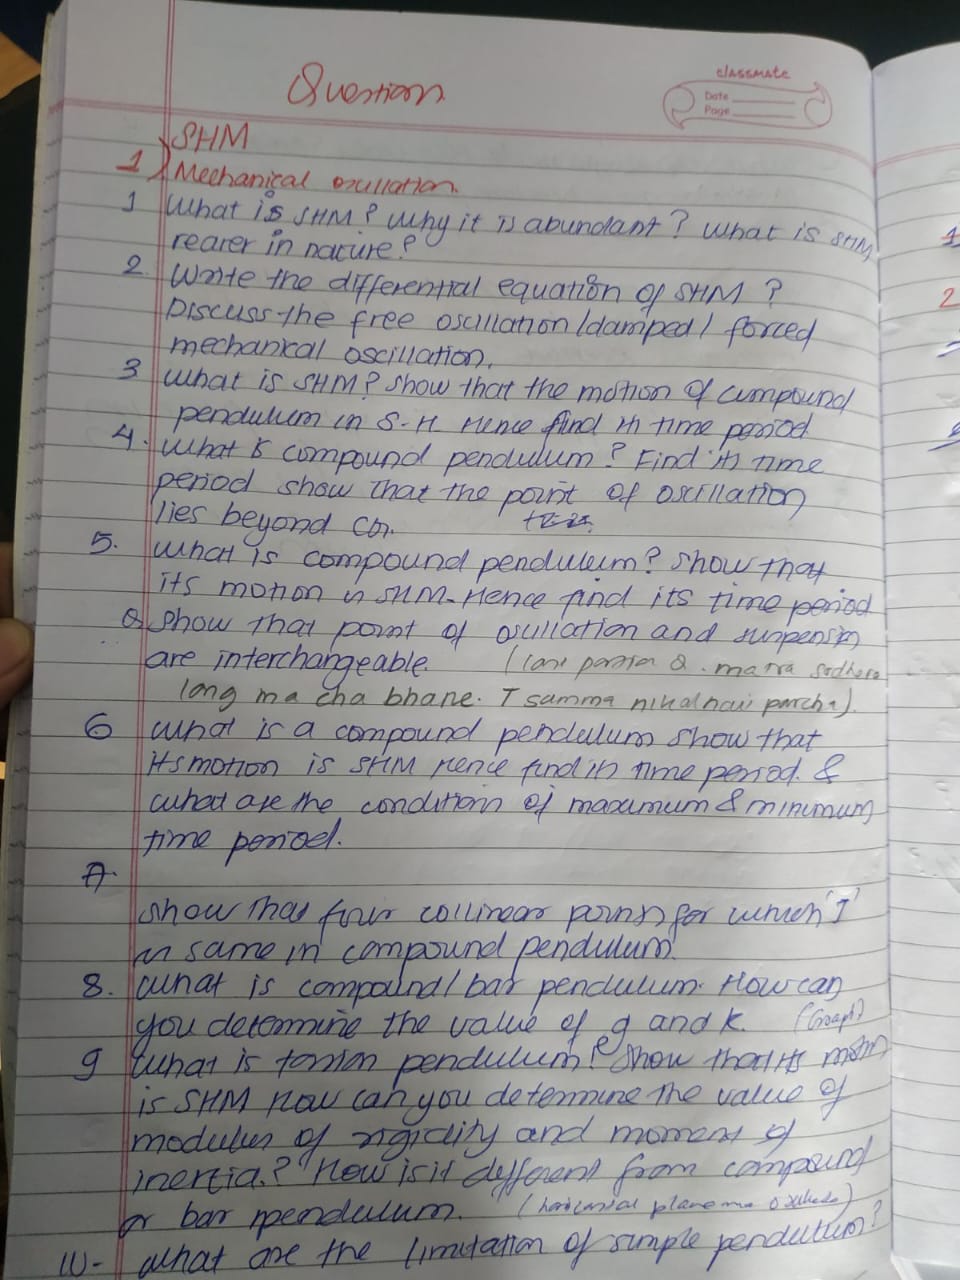 Question
classmate
Date
Page
SHM
1) Mechanical oscillation
1 What is SHM? Why it is abundant? What is SHM
rearer in nature?
2. Write the differential equation of SHM?
Discuss the free oscillation /damped/ forced
mechanical oscillation.
3 What is SHM? Show that the motion of compound
pendulum in S.H. Hence find its time period
4. What is compound pendulum? Find its time
period show that the point of oscillation
lies beyond
5. What is compound pendulum? Show that
its motion is SHM. Hence find its time period
Q. Show that point of oscillation and suspension
are interchangeable. Q. matra sodhera
long ma cha bhane. T samma nikalnai parcha).
6 What is a compound pendulum show that
its motion is SHM hence find its time period. &
what are the condition of maximum & minimum
time period.
7.
Show that four collinear points for which 'T'
is same in compound pendulum.
8. What is compound/bar pendulum. How can
you determine the value of g and K. (Graph)
9 What is torsion pendulum? Show that its motion
is SHM How can you determine the value of
modulus of rigidity and moment of
inertia.? How is it different from compound
or bar pendulum. (horizontal plane ma
10- What are the limitation of simple pendulum?
1
2